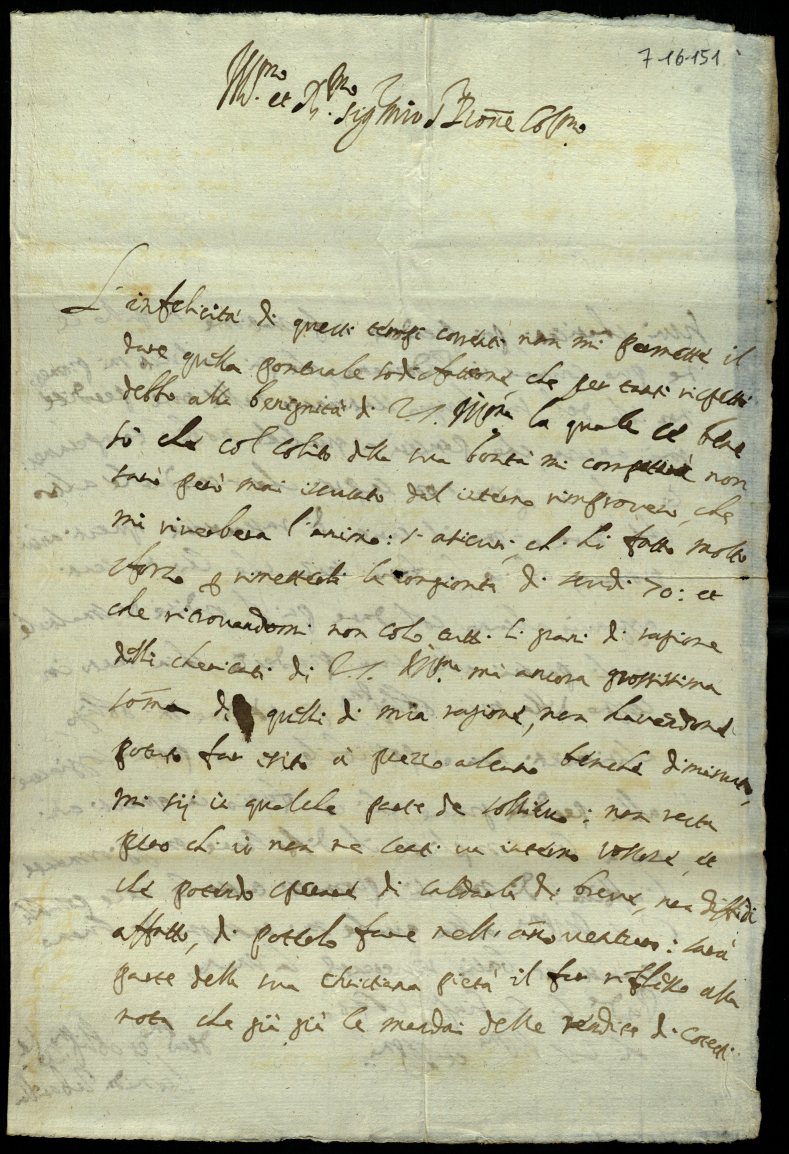 7-16-151
Ill.mo et R.mo Sig.r mio P.rone Col.mo
L'infelicità di questi tempi correnti non mi permette il
dare quella pontuale sodisfattione che per tanti rispetti
debbo alla benignità di V.S. Ill.ma la quale se bene
sò che col solito della sua bontà mi compatirà non
sarò però mai scusato dal interno rimprovero, che
mi riverbera l'animo: s'assicuri, ch. hò fatto molto
sforzo p rimetterli la congionta di scudi 70: et
che ritrovandomi non solo tutti li grani di ragione
delli chiericati di V.S. Ill.ma mà ancora grossissima
soma di quelli di mia ragione, non havendone
potuto far esito à prezzo alcuno benche diminuto,
mi sij in qualche parte de sollievo: non resta
però ch. io non ne senti un interno rossore, et
che potendo sperare di saldarla di breve, non diffidi
affatto, di poterlo fare nell'anno venturo: sarà
parte della sua christiana pietà il far riflesso alla
nota che già già le mandai delle vendite di cotesti